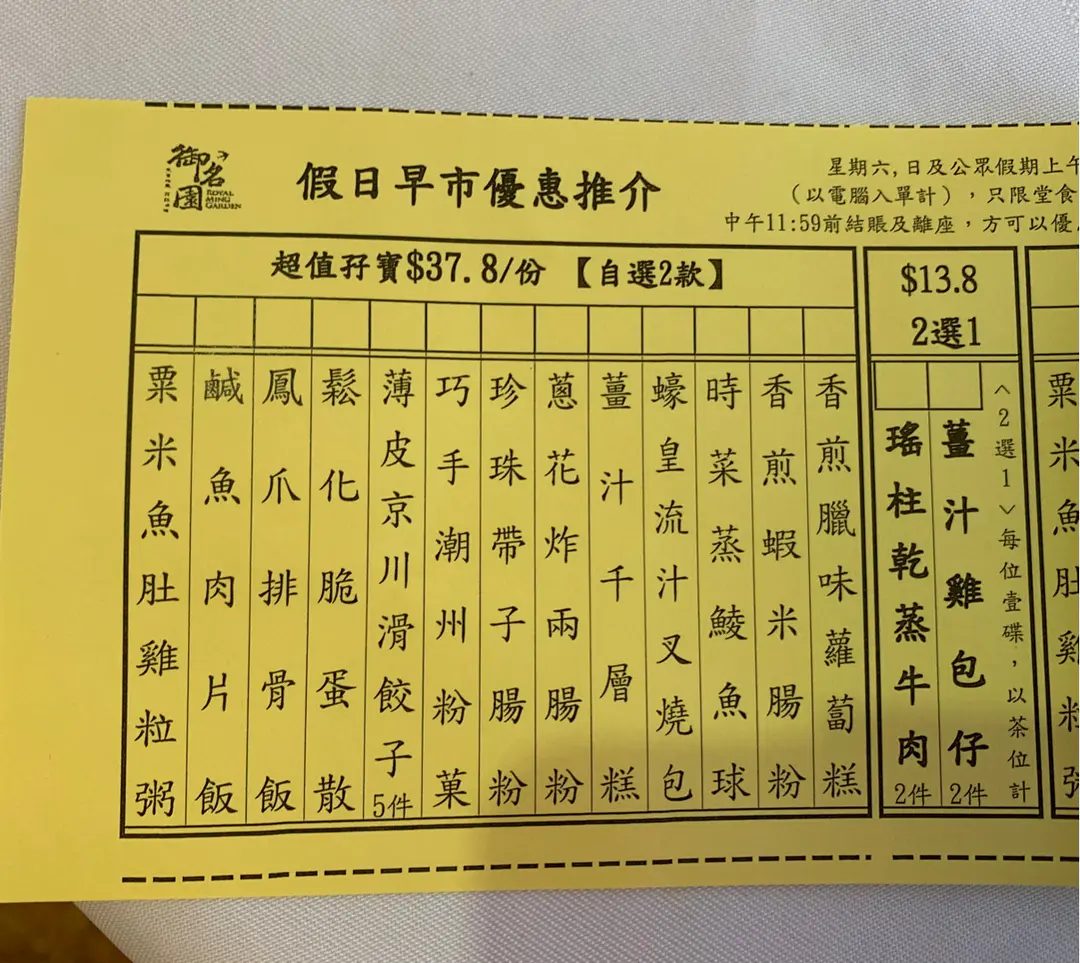 御名園
ROYAL
MING
GARDEN
假日早市優惠推介
星期六,日及公眾假期上午
(以電腦入單計),只限堂食
中午11:59前結賬及離座,方可以優
超值孖寶$37.8/份 【自選2款】
香煎臘味蘿蔔糕
香煎蝦米腸粉
時菜蒸鯪魚球
蠔皇流汁叉燒包
薑汁千層糕
蔥花炸兩腸粉
珍珠帶子腸粉
巧手潮州粉菓
薄皮京川滑餃子5件
鬆化脆蛋散
鳳爪排骨飯
鹹魚肉片飯
粟米魚肚雞粒粥
$13.8
2選1
<2選1>每位壹碟,以茶位計
薑汁雞包仔2件
瑤柱乾蒸牛肉2件
粟米魚肚雞粒粥